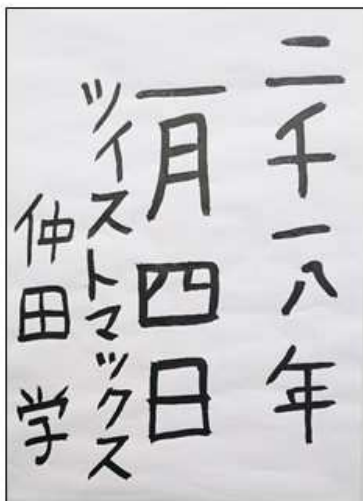 二千一八年
一月四日
ツイストマックス
仲田学